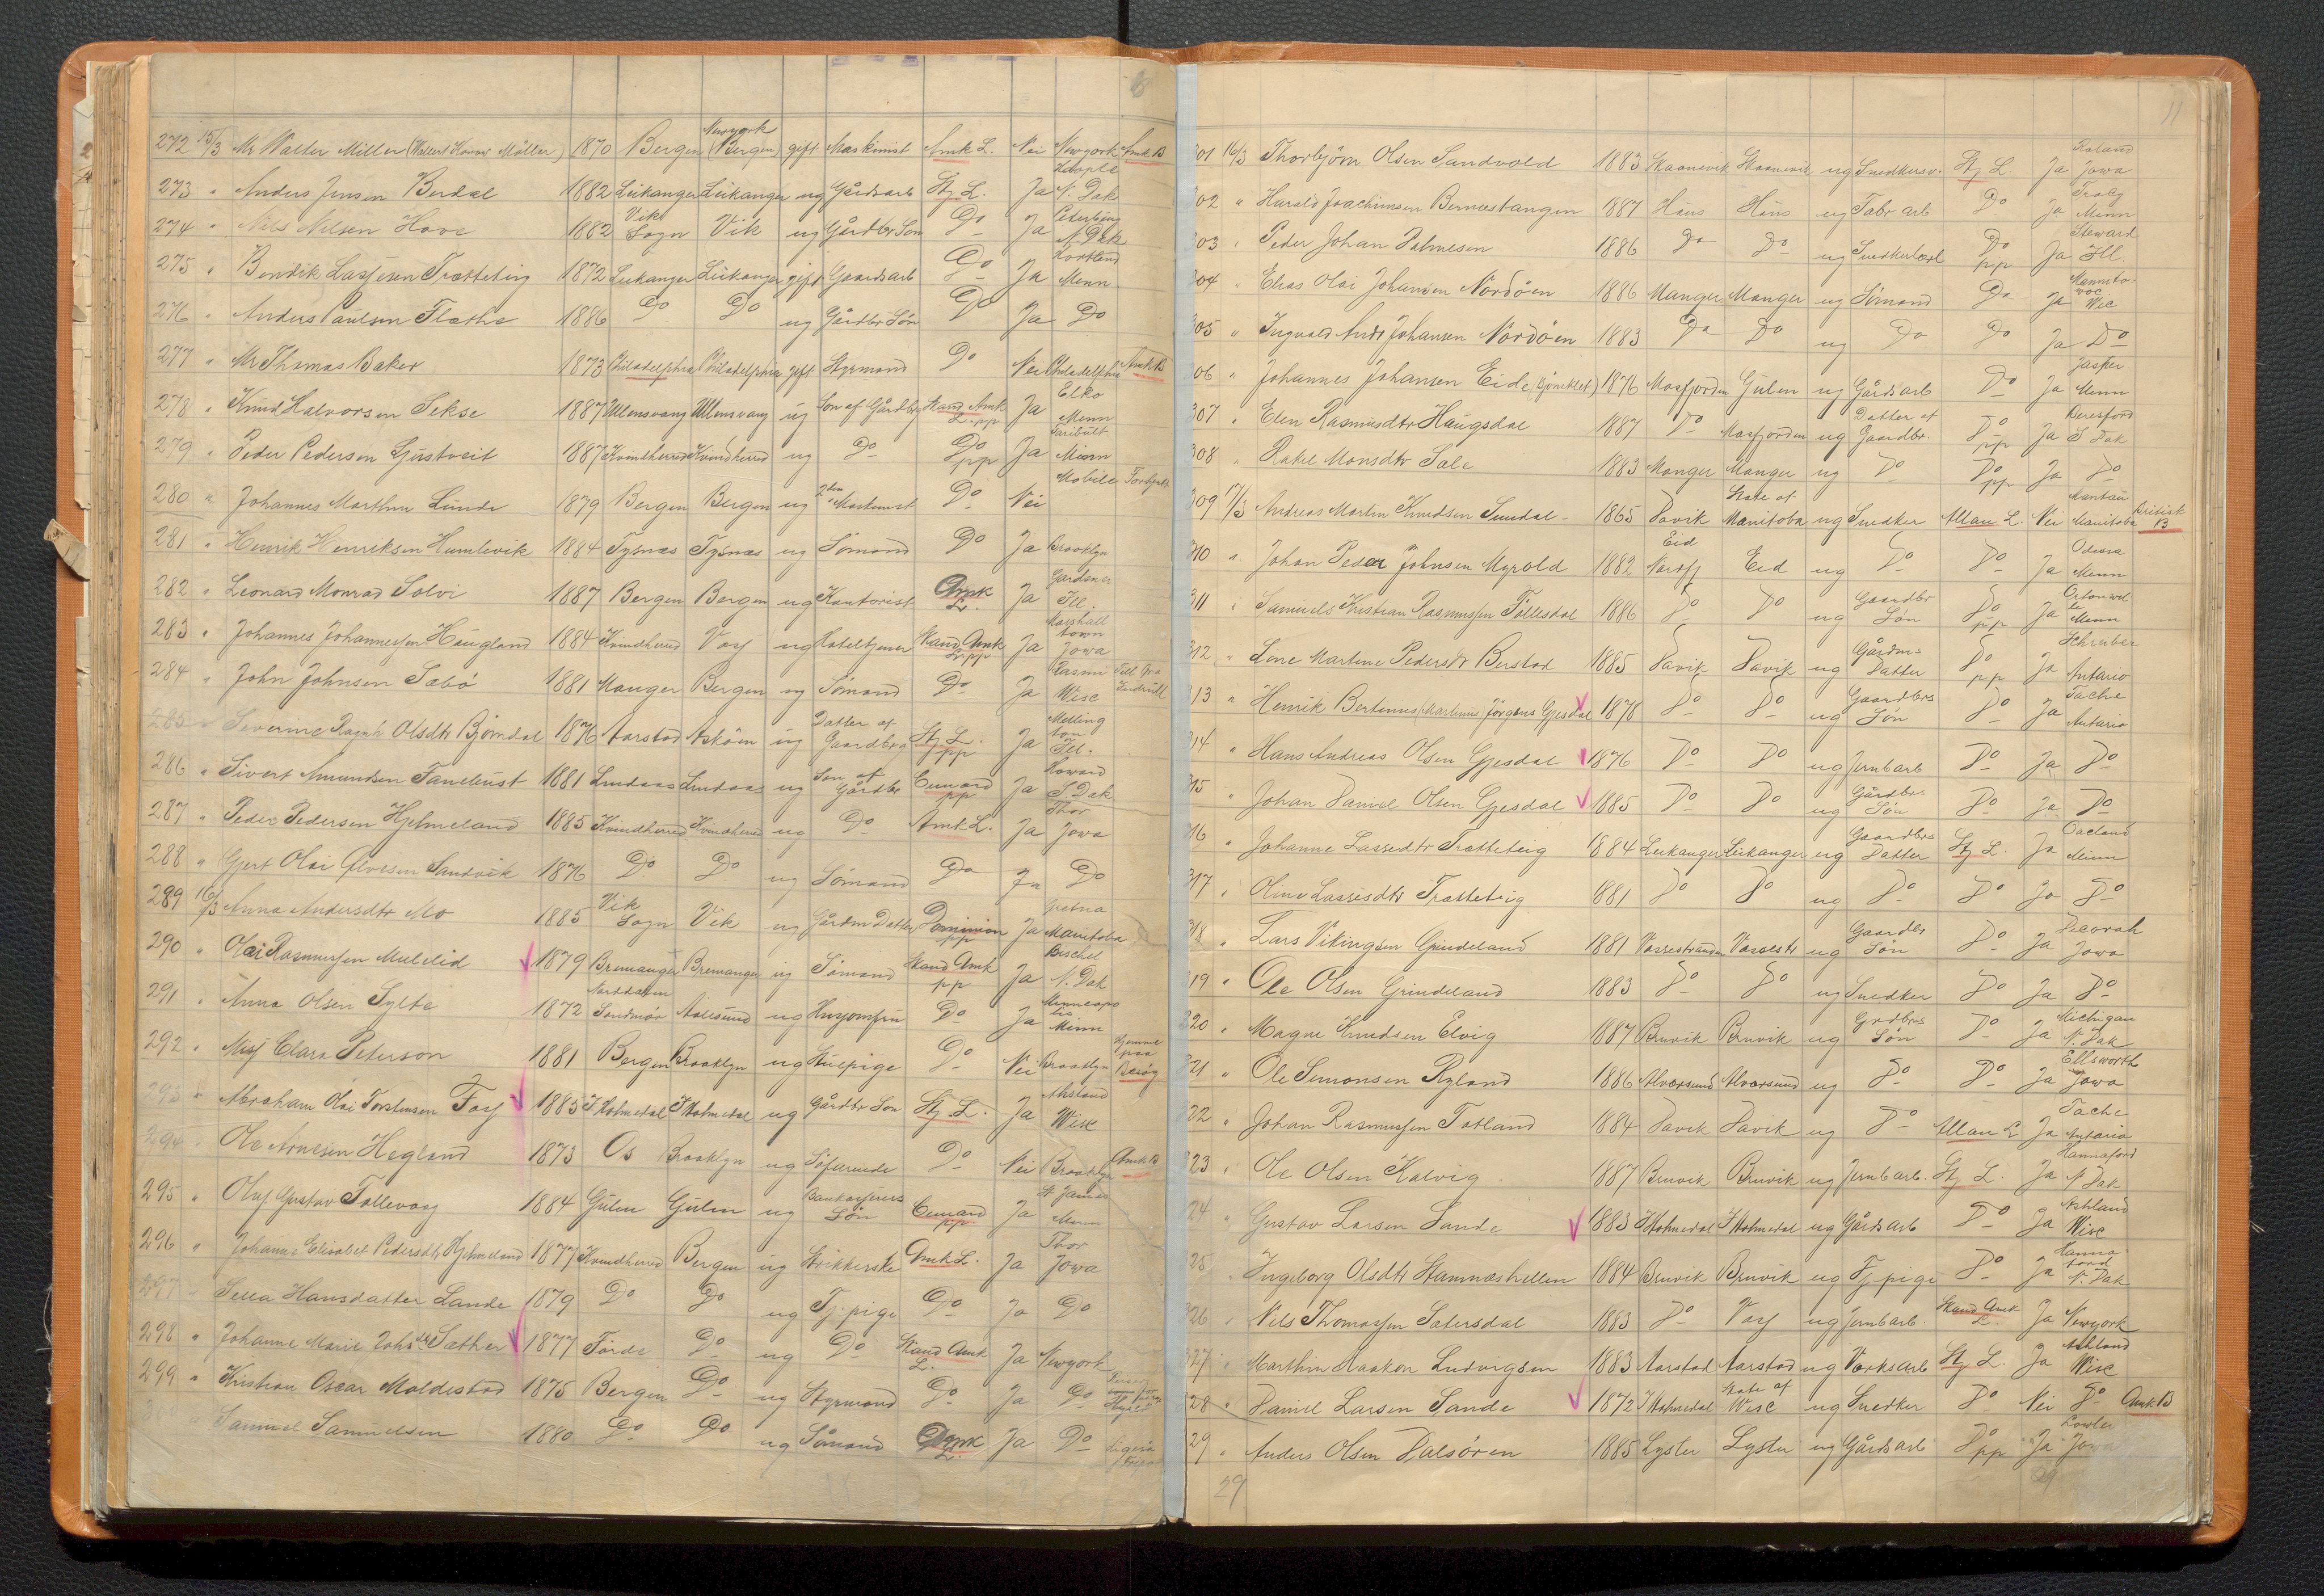 272 15/3 Mr Walter Miller ( Møller) 1870 Bergen Newyork (Bergen) gift Maskinist Amk L. Nei Newyork Amk B
273 " Anders Jensen Berdal 1882 Leikanger Leikanger ug Gårdsarb Stj L. Ja N. Dak
274 " Nils Nilsen Hove 1882 Vik Sogn Vik ug Gårdbr Søn Do Ja N. Dak
275 " Bendik Lassesen Trætteteig 1872 Leikanger Leikanger gift Gaardsarb Do Ja Minn
276 " Anders Paulsen Flathe 1886 Do Do ug Gårdbr Søn Do Ja Do
277 " Mr Thomas Baker 1873 Philadelphia Philadelphia gift Styrmand Do Nei Philadelphia Amk B
278 " Knud Halvorsen Sekse 1887 Ullensvang Ullensvang ug Søn af Gårdbr Skand Amk L. pp Ja Elko Minn
279 " Peder Pedersen Gjerstveit 1887 Kvindherred Kvindherred ug Do Do pp Ja Faribult Minn
280 " Johannes Marthin Lunde 1879 Bergen Bergen ug 2den Maskinist Do Nei Mobile
281 " Henrik Henriksen Humlevik 1884 Tysnæs Tysnæs ug Sømand Do Ja Brooklyn
282 " Leonard Monrad Solvi 1887 Bergen Bergen ug Kontorist Amk L. Ja Gardner Ill.
283 " Johannes Johannessen Haugland 1884 Kvindherred Voss ug Hoteltjener Skand Amk L. pp Ja Marshall town Jowa
284 " John Johnsen Sæbø 1881 Manger Bergen ug Sømand Do Ja Rasine Wisc
285 " Severine Ragnh Olsdtr Bjørndal 1876 Aarstad Askøen ug Datter af Gaardbrg Stj L. pp Ja Melling ton Ill.
286 " Sivert Amundsen Fanebust 1881 Lindaas Lindaas ug Søn af Gårdbr Cunard pp Ja Howard S Dak
287 " Peder Pedersen Hjelmeland 1885 Kvindherred Kvindherred ug Do Amk L. Ja Thor Jowa
288 " Gjert Olai Alvesen Sandvik 1876 Do Do ug Sømand Do Ja Do
289 16/3 Anna Andersdtr Mo 1885 Vik Sogn Vik ug Gårdm Datter Dominion pp Ja Gretna Manitoba
290 " Olai Rasmussen Mulelid 1879 Bremanger Bremanger ug Sømand Skand Amk pp Ja Bischel N. Dak
291 " Anna Olsen Sylte 1872 Norddalen Søndmør Aalesund ug Husjomfru Do Ja Minneapo lis Minn
292 " Miss Clara Peterson 1881 Bergen Brooklyn ug Stuepige Do Nei Brooklyn Hjemme paa Besøg
293 " Abraham Olai Torstensen Foss 1885 Y Holmedal Y Holmedal ug Gårdbr Søn Stj L. Ja Ashland Wisc
294 " Ole Arnesen Hegland 1873 Os Brooklyn ug Søfarende Do Nei Brooklyn Amk B
295 " Oluf Gustav Tollevaag 1884 Gulen Gulen ug Søn Cunard pp. Ja St James Minn
296 " Johanne Elisabet Pedersdtr Hjelmeland 1877 Kvindherred Bergen ug Strikkerske Amk L. Ja Thor Jowa
297 " Sella Hansdatter Lande 1879 Do Do ug Tj. pige Do Ja Do
298 " Johanne Marie Johsdtr Sæther 1877 Førde Do ug Do Skand Amk L. Ja Newyork
299 " Kristian Oscar Moldestad 1875 Bergen Do ug Styrmand Do Ja Do
Samuel Samuelsen 1880 Do Do ug Sømand Amk L. Ja Do
11
301 16/3 Thorbjørn Olsen Sandvold 1883 Skaanevik Skaanevik ug Snedkersv. Stj L Ja Jowa
02 " Harald Joachimsen Bernæstangen 1887 Haus Haus ug Fabr arb. Do Ja Minn
03 " Peder Johan Palmesen 1886 Do Do ug Snedkerlærl Do pp Ja Steward Ill.
04 " Elias Olai Johansen Nordøen 1886 Manger Manger ug Sømand Do Ja Mannito woc Wisc
05 " Ingvald Andr Johansen Nordøen 1883 Do Do ug Do Do Ja Do
06 " Johannes Johansen Eide 1876 Masfjorden Gulen ug Gårdsarb Do Ja Jasper Minn
307 " Elen Rasmusdtr Haugsdal 1887 Do Masfjorden ug Datter af Gaardbr. Do pp Ja Beresford S Dak
308 " Rakel Monsdtr Sale 1883 Manger Manger ug Do Do pp Ja Do
309 17/3 Andreas Martin Knudsen Sundal 1865 Davik State of Manitoba ug Snedker Allan L. Nei Manitoba British B
310 " Johan Peder Johnsen Myrold 1882 Eid Nordfj Eid ug Do Do Ja Odessa Minn
311 " Samuels Kristian Rasmussen Føllesdal 1886 Do Do ug Gaardbr Søn Do pp Ja Ortonvil le Minn
312 " Lene Martine Pedersdtr Berstad 1885 Davik Davik ug Gårdm Datter Do pp Ja Schreiber Antario
313 " Henrik Bertinus (Martinus) Jørgens Gjesdal 1878 Do Do ug Gaardbrs Søn Do Ja Tache Antario
314 " Hans Andreas Olsen Gjesdal 1876 Do Do ug Jernb arb Do Ja Do
315 " Johan Daniel Olsen Gjesdal 1885 Do Do ug Gårdbrs Søn Do Ja Do
316 " Johanne Lassedtr Trætteteig 1884 Leikanger Leikanger ug Gaardbrs Datter Stj L. Ja Minn
317 " Oline Lassesdtr Trætteteig 1881 Do Do ug Do Do Ja Do
318 " Lars Vikingsen Grindeland 1881 Vossestranden Vossestr ug Gaardbr Søn Do Ja Decorah Jowa
319 " Ole Olsen Grindeland 1883 Do Do ug Snedker Do Ja Do
320 " Magne Knudsen Elvig 1887 Bruvik Bruvik ug Grdbrs Søn Do Ja Michigan N. Dak
321 " Ole Simonsen Ryland 1886 Alversund Alversund ug Do Do Ja Ellsworth Jowa
322 " Johan Rasmussen Totland 1884 Davik Davik ug Do Allan L Ja Tache Antario
323 " Ole Olsen Kalvig 1887 Bruvik Bruvik ug Jernb arb. Stj L. Ja Hannaford N Dak
24 " Gustav Larsen Sande 1883 Y Holmedal Y Holmedal ug Gårdsarb Do Ja Ashland Wisc
25 " Ingeborg Olsdtr Stamneshellen 1884 Bruvik Bruvik ug Tj. pige Do Ja Hanna ford N. Dak
26 " Nils Thomassen Satersdal 1883 Do Voss ug Jernb arb. Skand Amk L. Ja Newyork
327 " Marthin Haakon Ludvigsen 1883 Aarstad Aarstad ug Værksarb Stj L. Ja Ashland Wisc
328 " Daniel Larsen Sande 1872 Y Holmedal State of Wisc ug Snedker Do Nei Do Amk B
29 " Anders Olsen Dalsøren 1885 Lyster Lyster ug Gårdsarb Do pp Ja Jowa
29 29